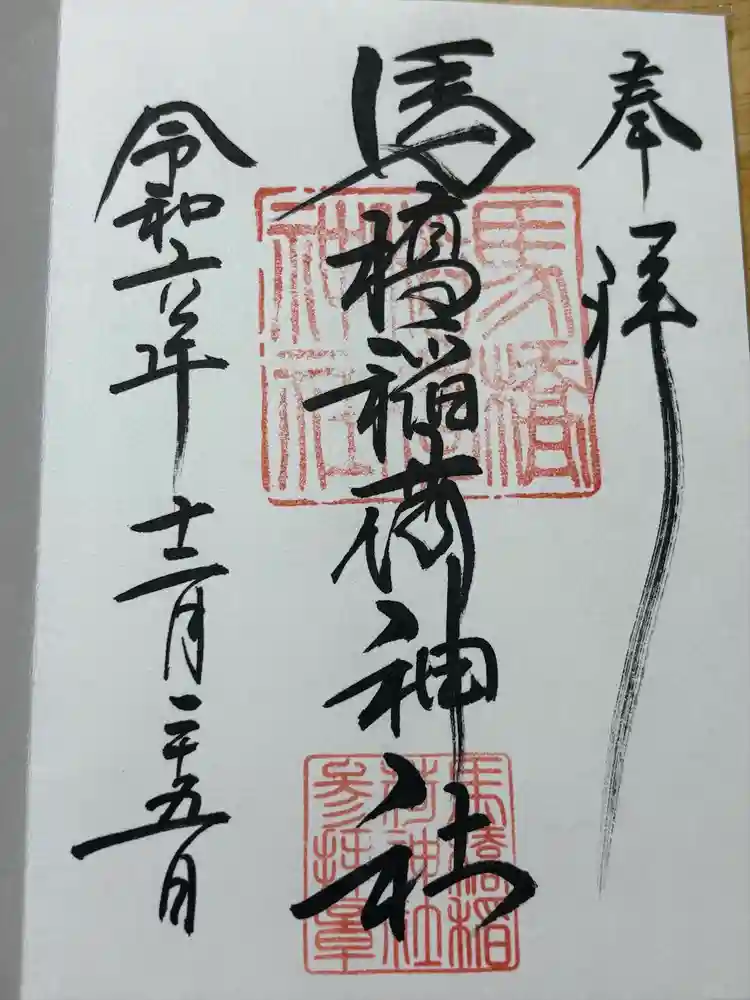 奉拝
馬橋稲荷神社
令和六年十二月二十五日
馬橋
稲荷
神社
馬橋稲
荷神社
参拝章